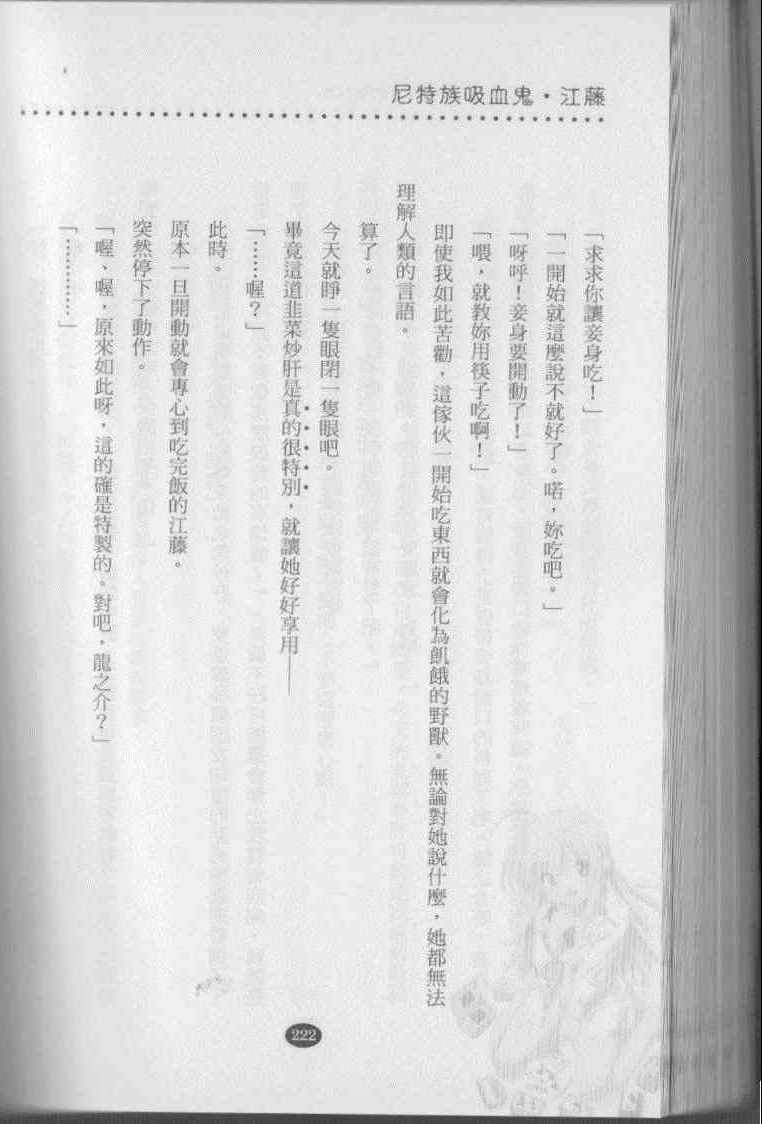 尼特族吸血鬼・江藤
「求求你讓妾身吃！」
「一開始就這麼說不就好了。喏，妳吃吧。」
「呀呼！妾身要開動了！」
「喂，就教妳用筷子吃啊！」
即使我如此苦勸，這傢伙一開始吃東西就會化為飢餓的野獸。無論對她說什麼，她都無法
理解人類的言語。
算了。
今天就睜一隻眼閉一隻眼吧。
畢竟這道韭菜炒肝是真的很特別，就讓她好好享用——
「……喔？」
此時。
原本一旦開動就會專心到吃完飯的江藤。
突然停下了動作。
「喔、喔，原來如此呀，這的確是特製的。對吧，龍之介？」
「…………」
222